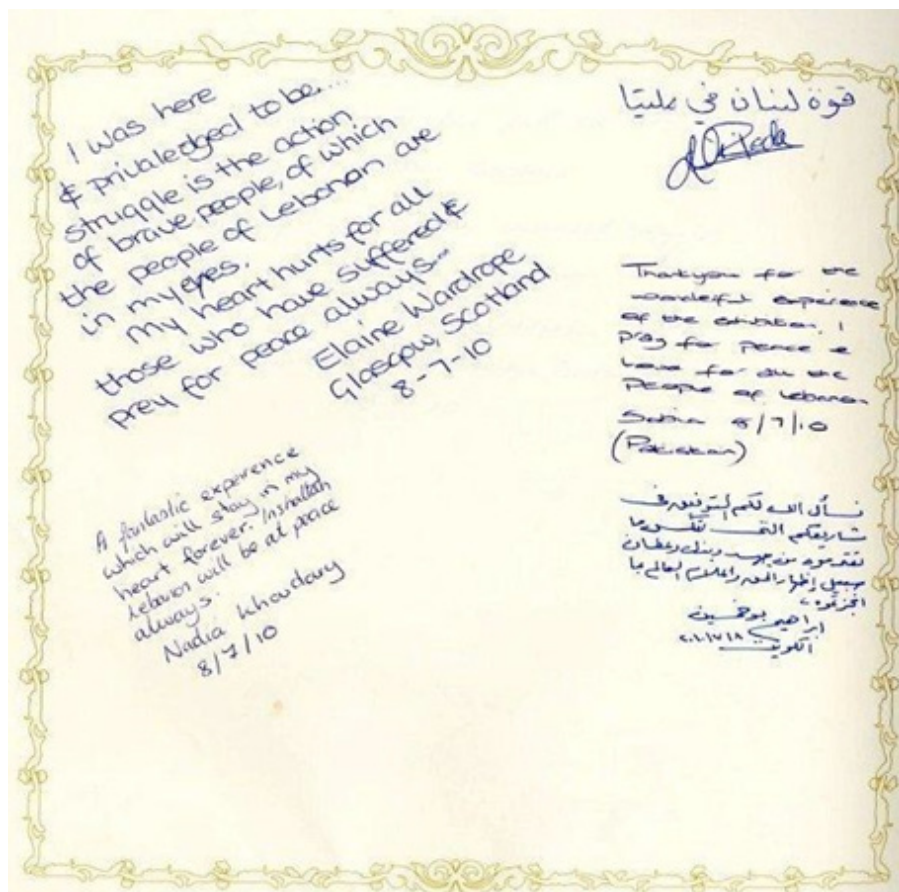 I was here
& privaledged to be....
struggle is the action
of brave people, of which
the people of Lebanon are
in my eyes.
My heart hurts for all
those who have suffered &
prey for peace always...
Elaine Wardrope
Glasgow, Scotland
8-7-10
A fantastic experence
which will stay in my
heart forever. Inshallah
Lebanon will be at peace
always.
Nadia Khoudary
8/7/10
قوة لبنان في مليتا
Thankyou for the
wonderful experience
of the exhibition. I
pray for peace &
love for all the
people of Lebanon
8/7/10
(Pakistan)
نسأل الله لكم التوفيق في
مشاريعكم التي تعكس ما
تقدموه من جهد وبذل وعطاء
سبيل إظهار الحق وإعلام العالم بما
أنجزتموه
ابراهيم بوخمسين
الكويت ٢٠١٠/٧/٨